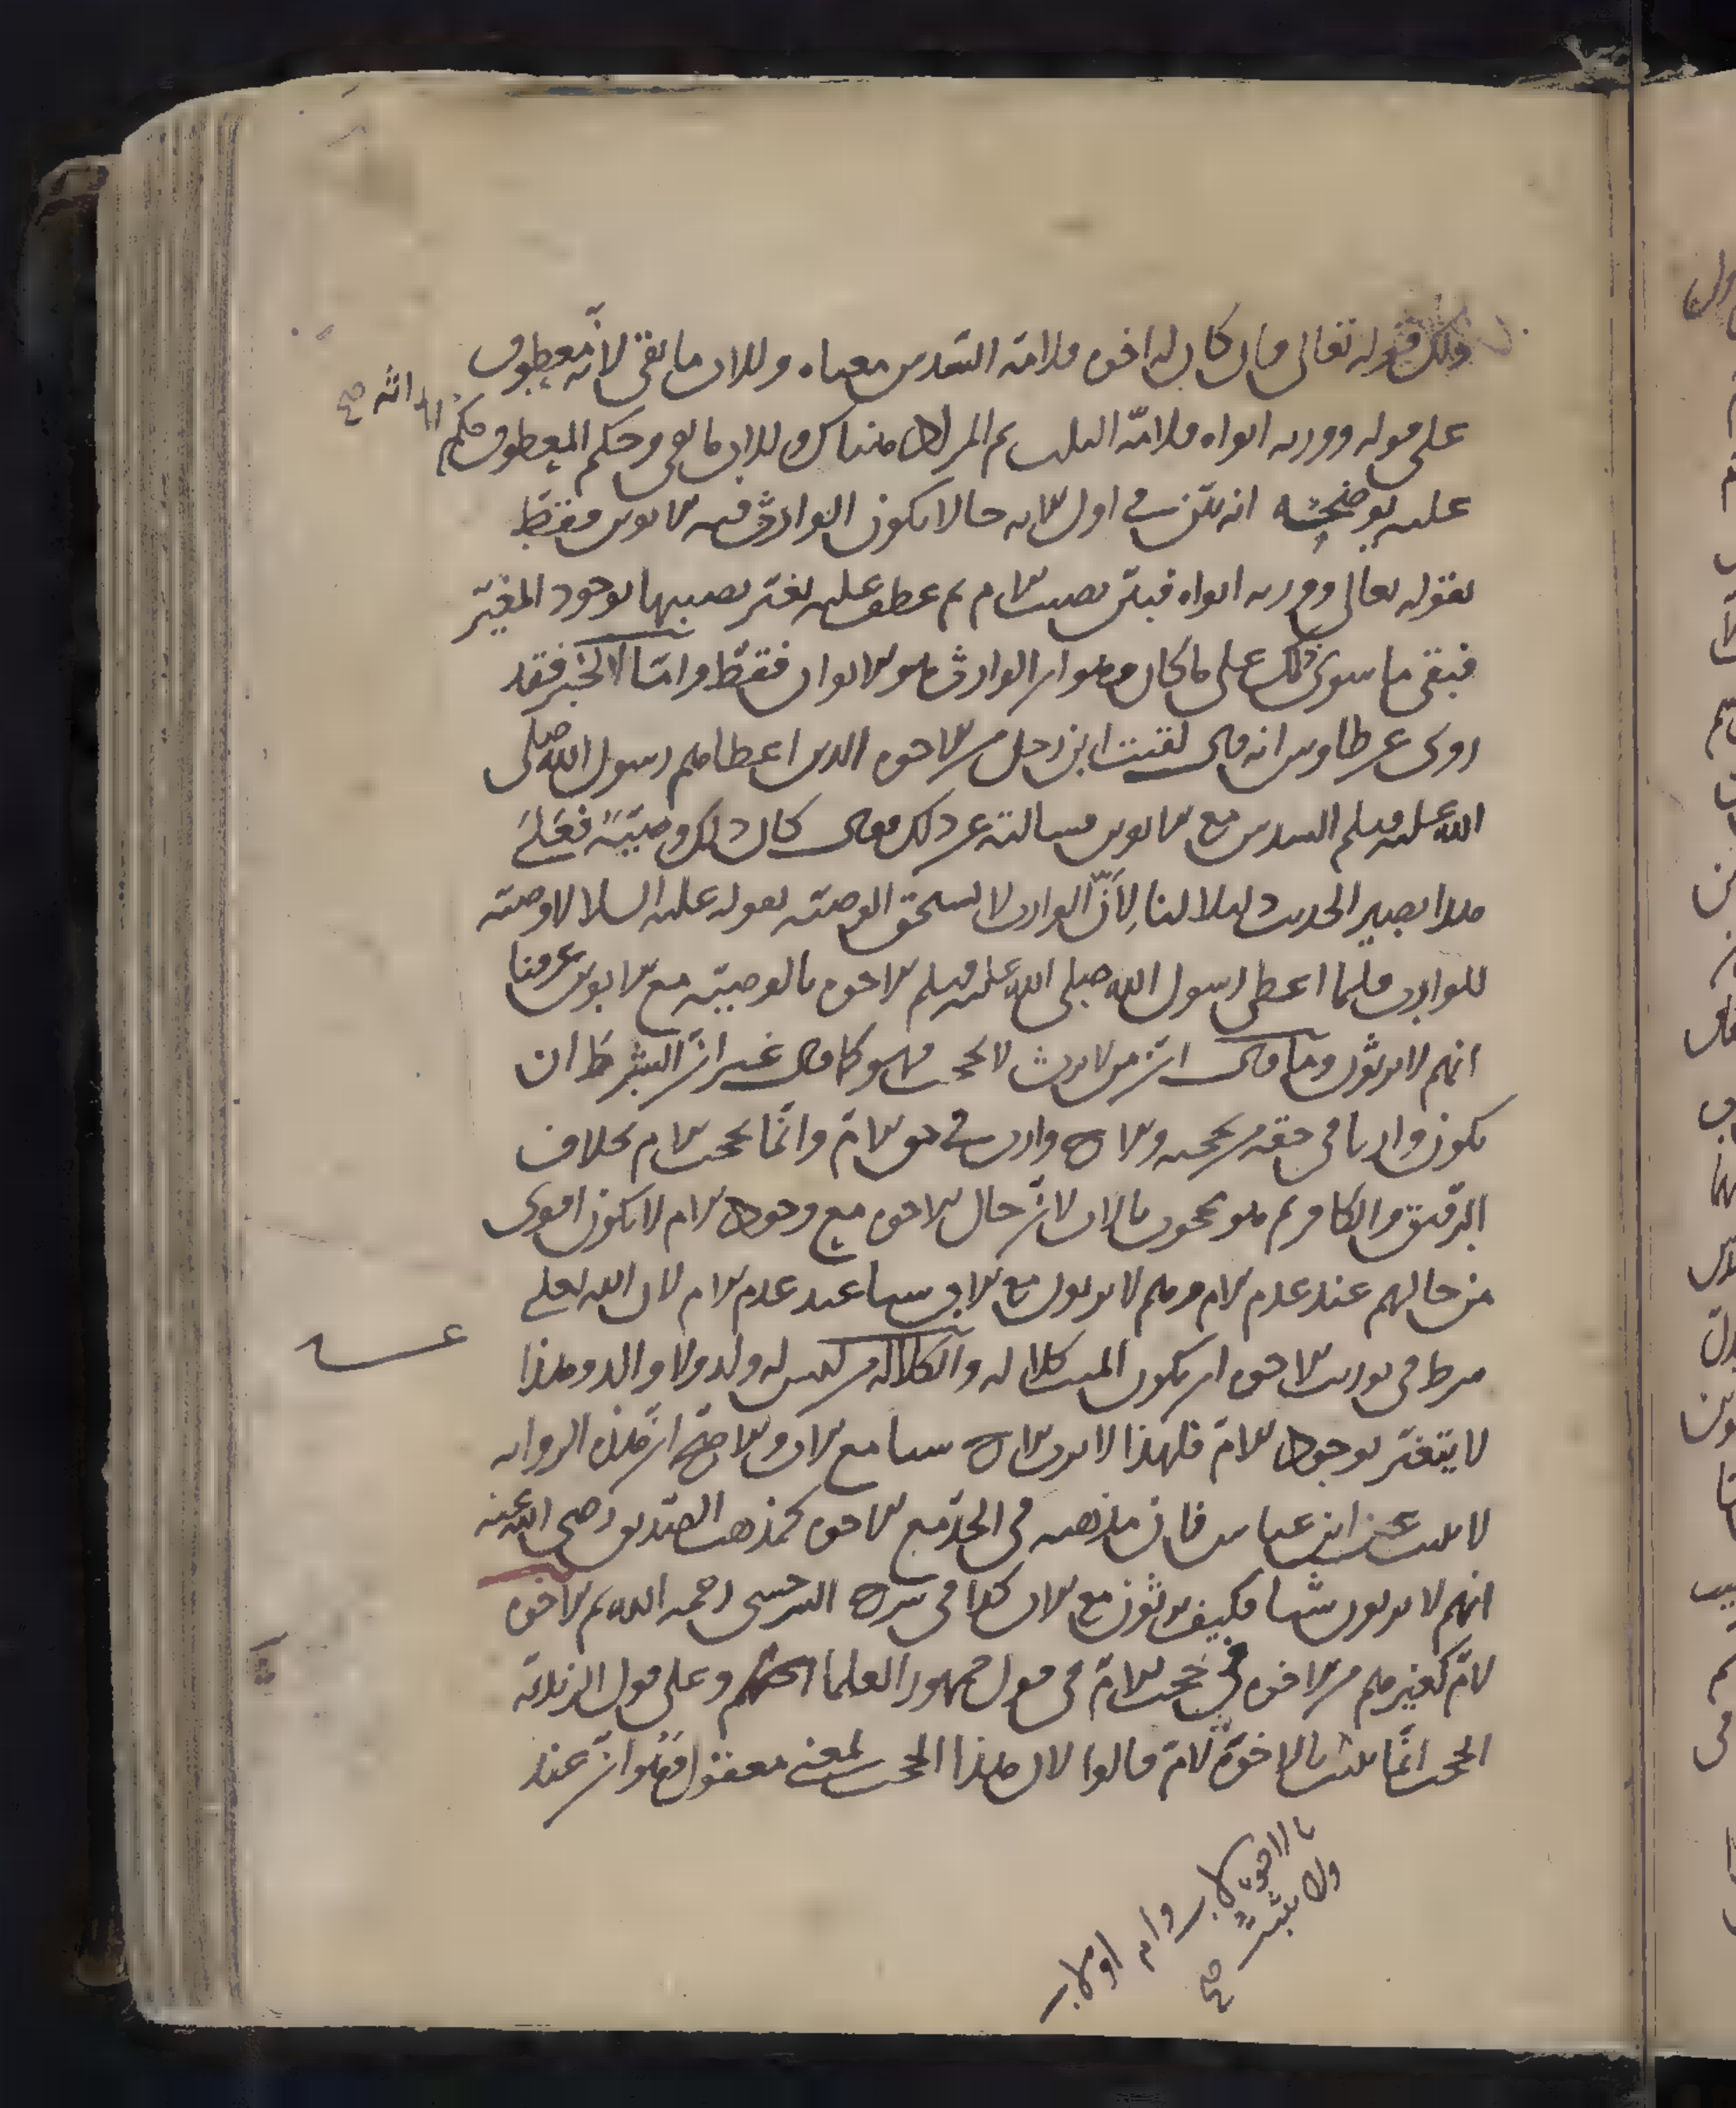 ذلك فقوله تعالى فان كان له اخوة فلامه السدس معناه وللاب ما بقى لانه معطوف
على قوله وورثه ابواه فلامه الثلث ثم المراد هناك وللاب ما بقى وحكم المعطوف حكم
عليه يوضحه انه بين في اول الاية حالا يكون الوارث فيه الابوين فقط
بقوله تعالى وورثه ابواه فبين نصيب الام ثم عطف عليه بغير نصيبها بوجود المغير
فبقى ما سوى ذلك على ما كان وهو ان الوارث هو الابوان فقط واما الخبر فقد
روى عن طاوس انه قال لقيت ابن رجل من الاخوة الذين اعطاهم رسول الله صلى
الله عليه وسلم السدس مع الابوين فسالته عن ذلك فقال كان ذلك وصية فعلى
هذا يصير الحديث دليلا لنا لأن الوارث لا يستحق الوصية لقوله عليه السلام لا وصية
للوارث فلما اعطى رسول الله صلى الله عليه وسلم الاخوة بالوصية مع الابوين عرفنا
انهم لا يرثون وما قال ان من لا يرث لا يحجب فهو كما قال غير ان الشرط ان
يكون وارثا في حق من يحجبه والاخ وارث في حق الام وانما يحجب الام بخلاف
الرقيق والكافر ثم هو محجوب بالاب لان حال الاخوة مع وجود الام لا يكون اقوى
من حالهم عند عدم الام وهم لا يرثون مع الاب شيا عند عدم الام لان الله تعالى
شرط في توريث الاخوة ان يكون الميت كلالة والكلالة من ليس له ولد ولا والد وهذا
لا يتغير بوجود الام فلهذا لا يرث الاخ شيا مع الاب والاصح ان هذه الرواية
لا تثبت عن ابن عباس فان مذهبه في الجد مع الاخوة كمذهب الصديق رضى الله عنه
انهم لا يرثون شيا فكيف يرثون مع الاب كذا في شرح السرخسى رحمه الله ثم الاخوة
لام كغيرهم من الاخوة في حجب الام في قول جمهور العلما وعلى قول الزيدية
الحجب انما يثبت بالاخوة لام قالوا لان هذا الحجب لمعنى معقول وهو ان عند
بالاخوة لاب وام او لاب
ولا يثبت صح